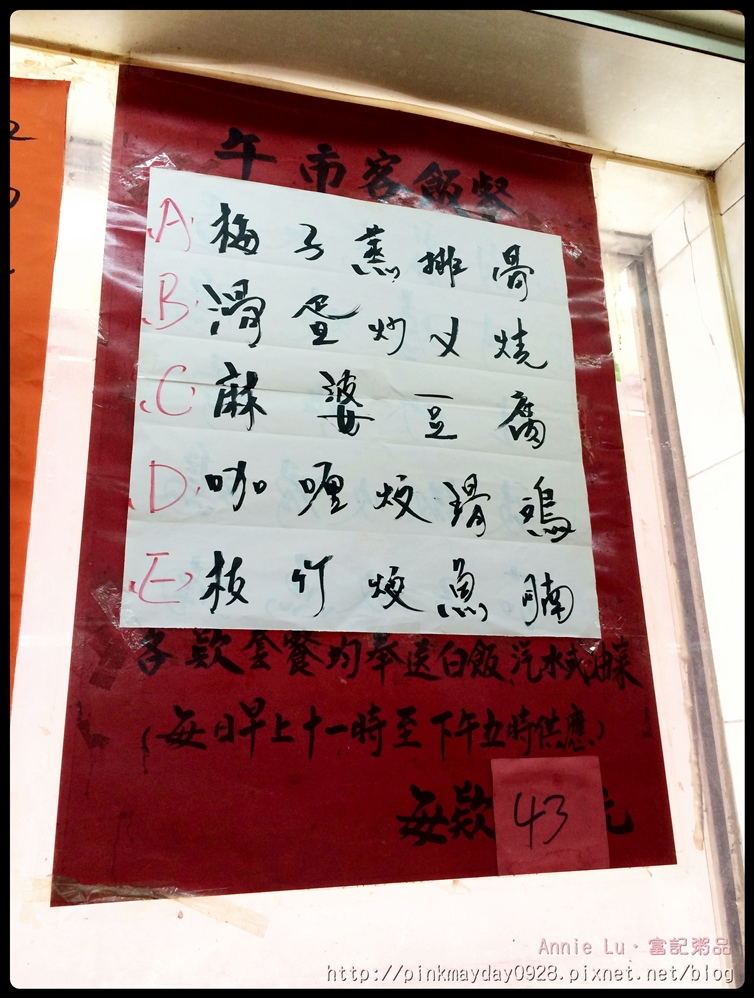 午市客飯餐
A. 梅子蒸排骨
B. 滑蛋炒叉燒
C. 麻婆豆腐
D. 咖喱炆滑鴂
E. 枝竹炆魚腩
各款套餐均奉送白飯汽水或油菜
(每日早上十一時至下午五時供應)
每款43元
Annie Lu · 富記粥品
http://pinkmayday0928.pixnet.net/blog